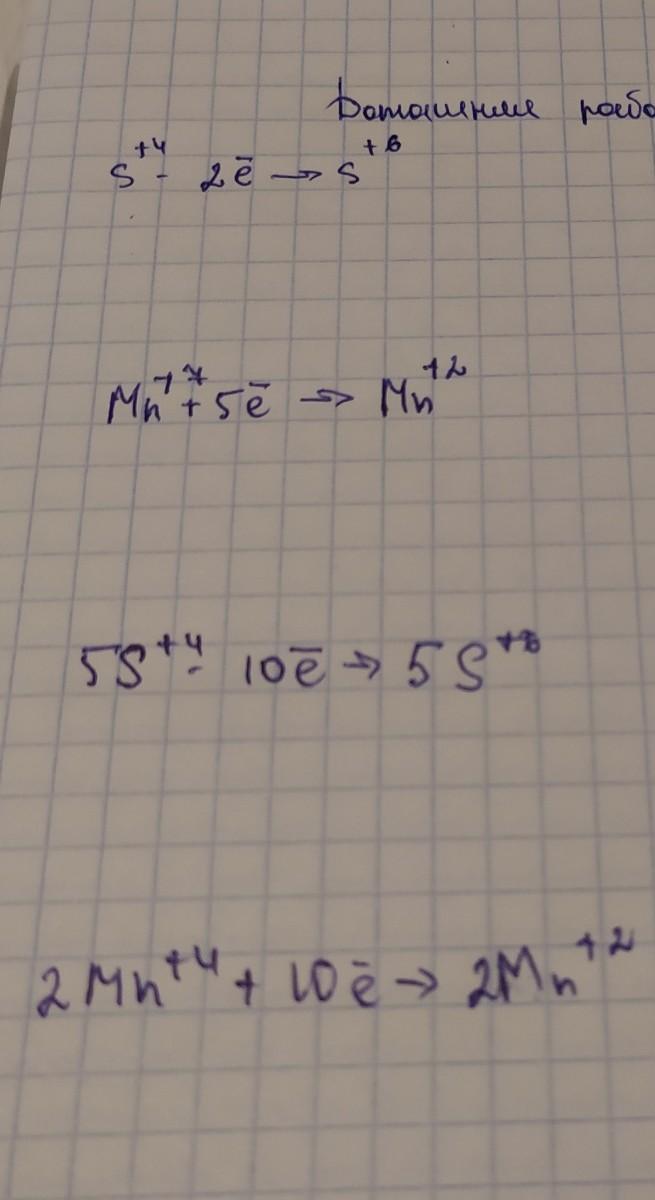 Домашняя рабо
S⁺⁴ - 2ē → S⁺⁶
Mn⁺⁷ + 5ē → Mn⁺²
5S⁺⁴ - 10ē → 5S⁺⁶
2Mn⁺⁴ + 10ē → 2Mn⁺²